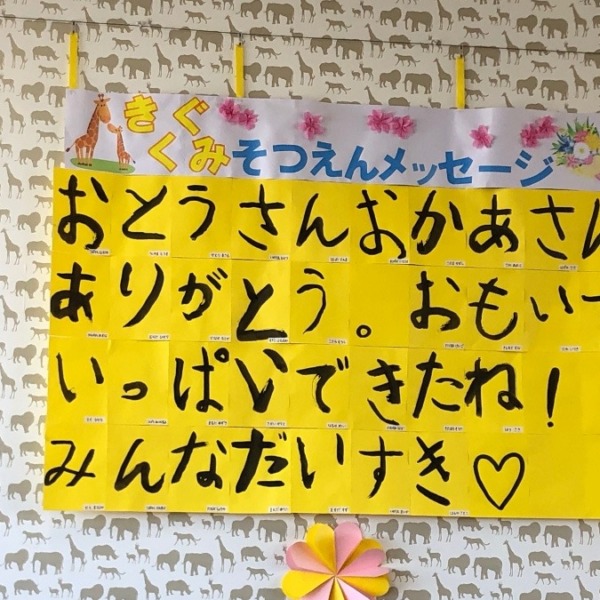 きぐ
くみそつえんメッセージ
おとうさんおかあさん
ありがとう。おもいー
いっぱいできたね！
みんなだいすき♡